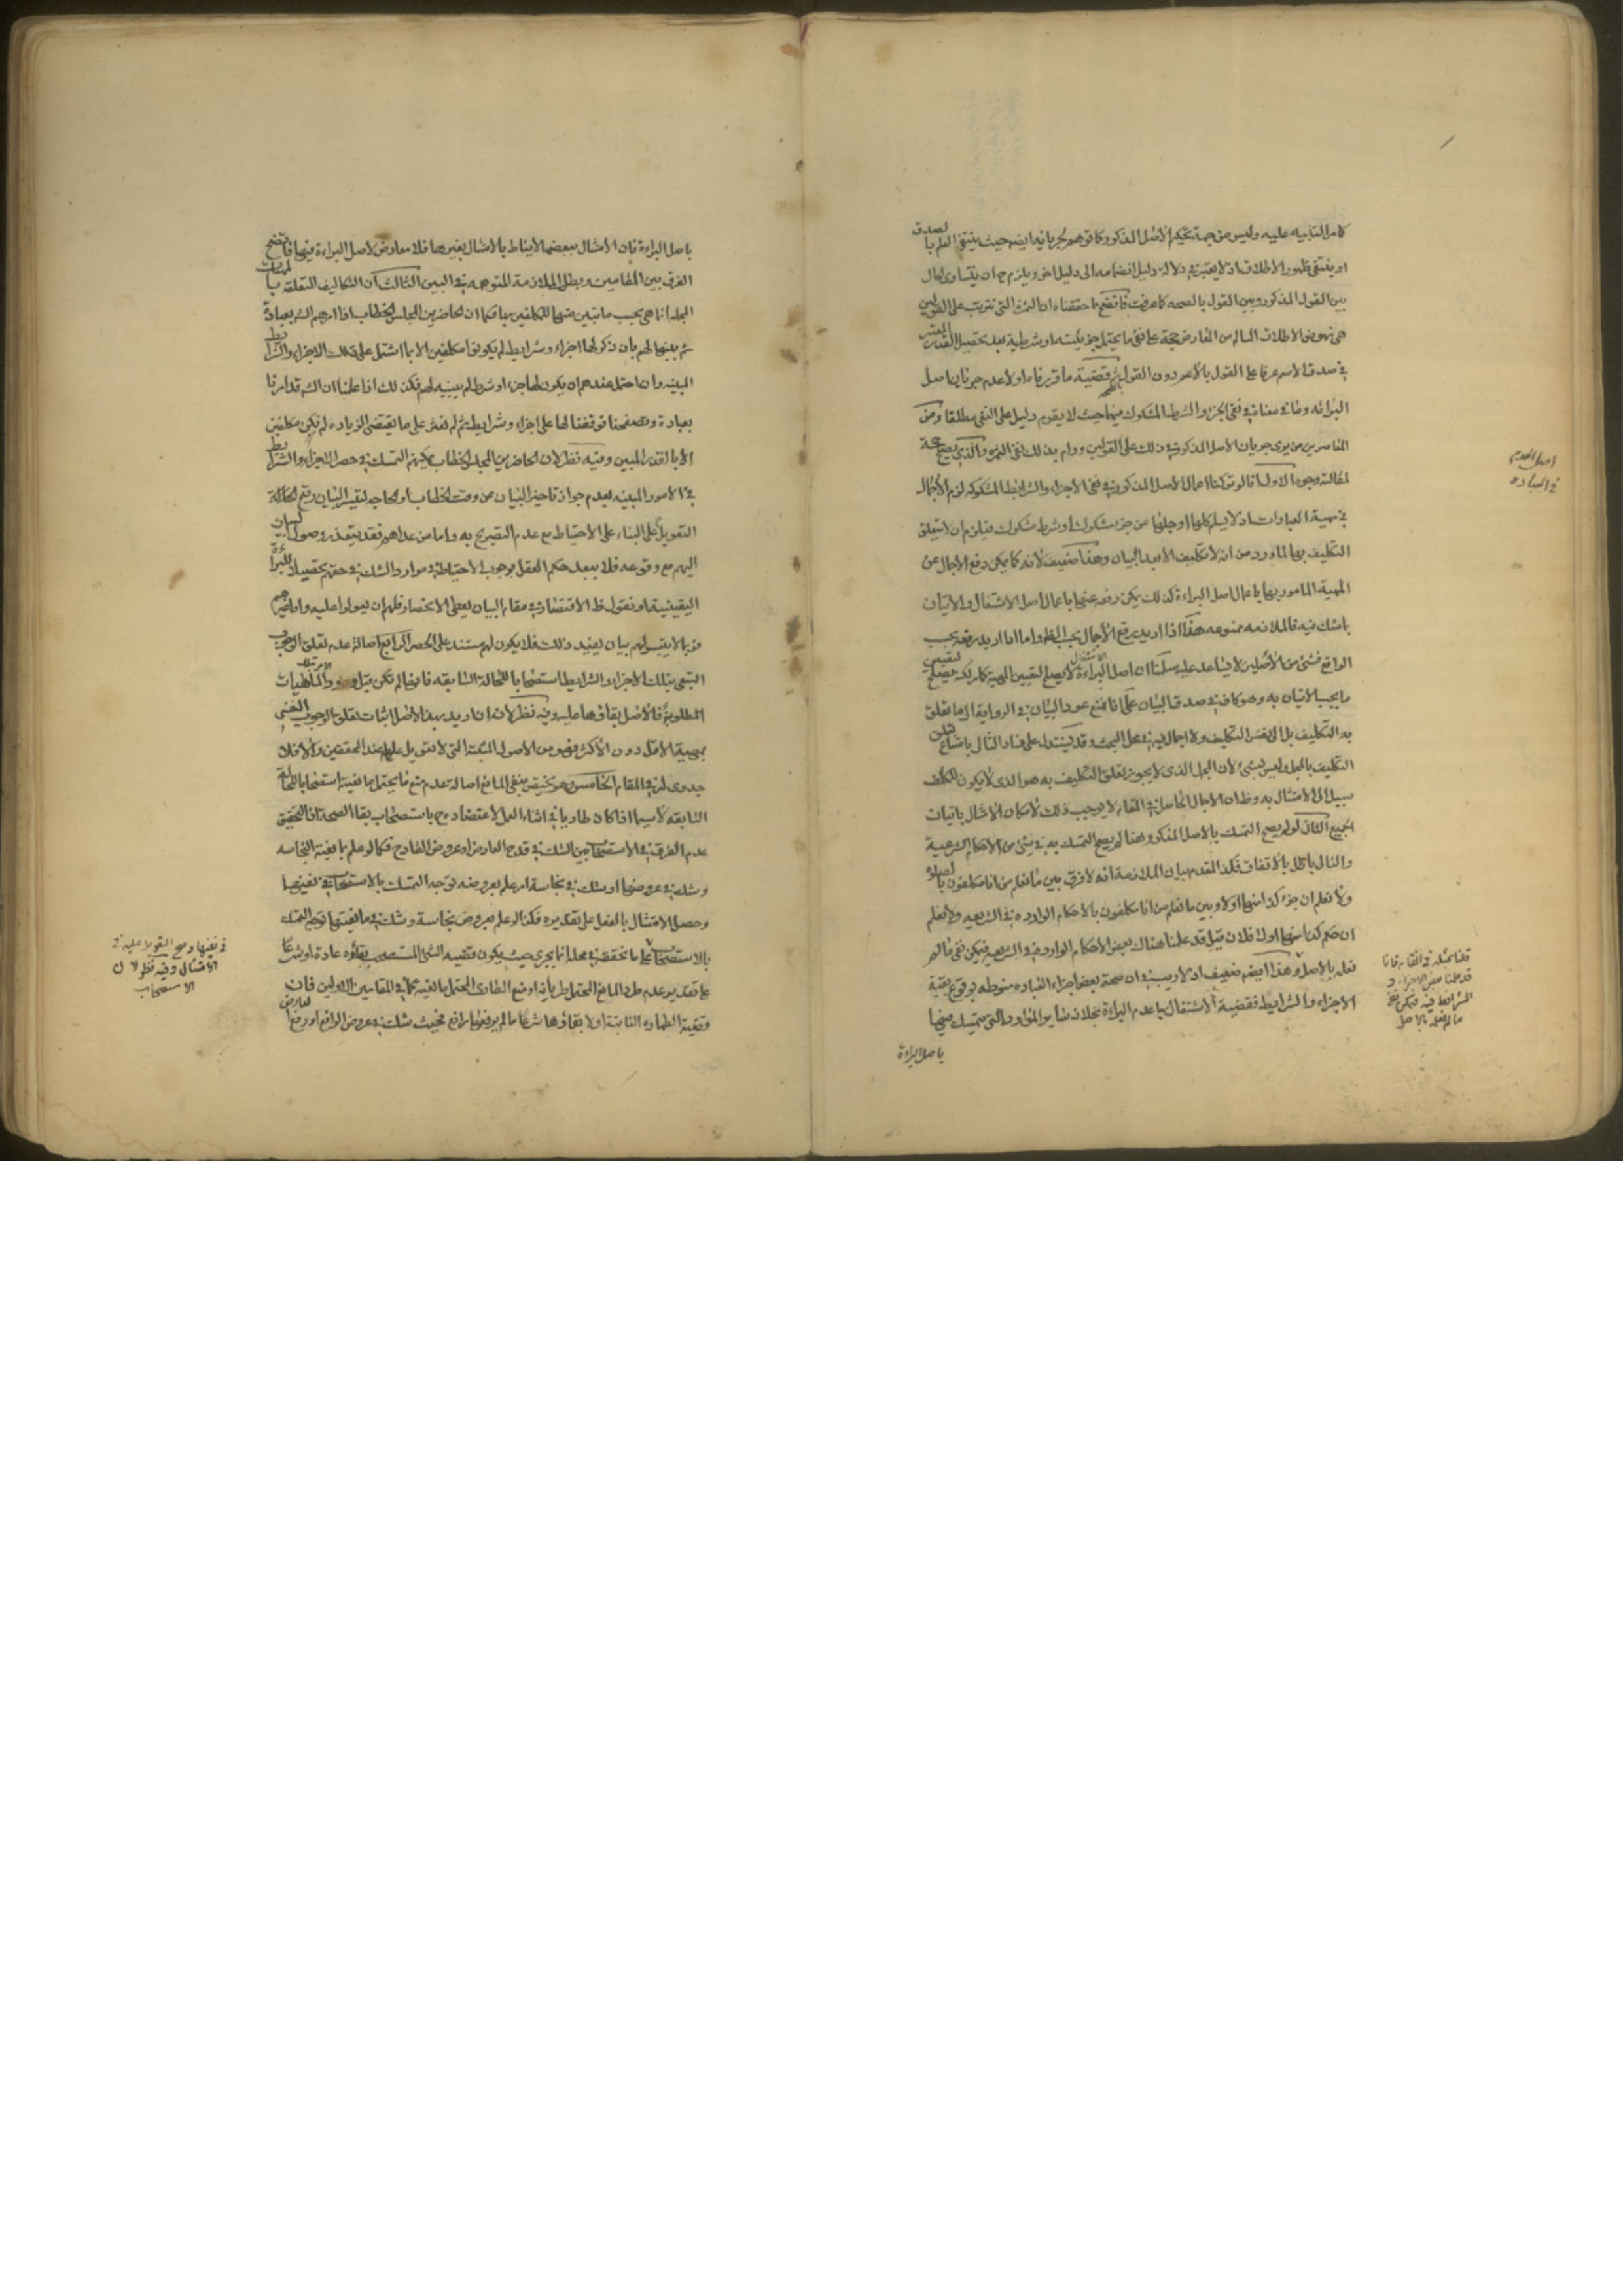 كما مر التنبيه عليه وليس من جهة تحكيم الأصل المذكور كما توهم لجريانه ايضا حيث ينتفي العلم بالصدق
او ينتفى ظهور الاطلاق اذ لا يعتبر في دلالة دليل انضمامه الى دليل اخر ويلزم ح ان يتساوى الحال
بين القول المذكور وبين القول بالصحه كما عرفت فاتضح بما حققناه ان الثمرة التي تترتب على القولين
هى نهوض الاطلاق السالم من المعارض حجة على نفى ما يحتمل جزئيته او شرطيته بعد تحصيل القدر المعتبر
في صدق الاسم عرفا على القول بالأعم دون القول بالصحيح ثم قضية ما قررناه اولا عدم جريان اصل
البرائه وما في معناه في نفى الجزء والشرط المشكوك فيهما حيث لا يقوم دليل على النفى مطلقا ومن
المعاصرين من يرى جريان الاصل المذكور في ذلك على القولين ورام بذلك نفى الثمرة والذى يصلح حجة
لمقالته وجوه الاول انا لو تركنا اعمال الاصل المذكور في نفى الاجزاء والشرائط المشكوكه لزم الاجمال
في مهية العبادات اذ لا يسلم كلها او جلها عن جزء مشكوك او شرط مشكوك فيلزم ان لا يتعلق
التكليف بها لما ورد من انه لا تكليف الا بعد البيان وهذا ضعيف لأنه كما يمكن دفع الاجمال عن
المهية المامور بها باعمال اصل البراءة كذلك يمكن رفعه عنها باعمال اصل الاشتغال والاتيان
بما شك فيه فالملازمه ممنوعه هذا اذا اريد رفع الأجمال بحسب الظ واما اذا اريد رفعه بحسب
الواقع فشئ من الأصلين لا يساعد عليه سلمنا ان اصل الاشتغال لا يصلح لتعيين المهية كأصل البراءة لكنه يصلح لتعيين
ما يجب الاتيان به وهو كاف في صدق البيان على انا نمنع عود البيان في الرواية الى ما تعلق
به التكليف بل الى نفس التكليف ولا اجمال فيه في محل البحث وقد يستدل على فساد التالى بامتناع تعلق
التكليف بالمجمل وليس بشئ لأن المجمل الذى لا يجوز تعلق التكليف به هو الذى لا يكون للمكلف
سبيل الى الامتثال به وظ ان الاجمال الحاصل في المقام لا يوجب ذلك لأمكان الامتثال باتيان
الجميع الثانى لو لم يصح التمسك بالاصل المذكور هنا لم يصح التمسك به في شئ من الاحكام الشرعية
والتالى باطل بالاتفاق فكذا المقدم بيان الملازمة انه لا فرق بين ما نعلم من انا مكلفون بالصلوة
ولا نعلم ان جزء كذا منها اولا وبين ما نعلم من انا مكلفون بالاحكام الوارده في الشريعه ولا نعلم
ان حكم كذا منها اولا فلان قيل قد علمنا هناك بعض الاحكام الوارده في الشريعه فيمكن نفى ما لم
نعلم بالاصل وهذا ايضا ضعيف اذ لا ريب في ان صحة بعض اجزاء العباده منوطه بوقوع بقية
الاجزاء والشرايط فقضية الاشتغال بها عدم البراءة بخلاف ساير الموارد التى يتمسك فيها
باصل البراءة
اصل العدم
في العباده
قلنا بمثله في المقام فانا
قد علمنا بعض الاجزاء و
الشرائط فيه فيمكن نفى
ما لم نعلمه بالاصل
باصل البراءة فان الامتثال ببعضها لا يناط بالامتثال بغيرها فلا معارض لاصل البراءة فيها فاتضح
الفرق بين المقامين وبطل الملازمة المتوهمه في البين الثالث ان التكاليف المتعلقه بالمهيات
المجملة انما هي بحسب ما تبين منها للمكلفين بها فكما ان الحاضرين المجلس الخطاب اذا امرهم الشارع بعبادة
ثم بينها لهم بان ذكر لها اجزاء وشرايط لم يكونوا مكلفين الا بما اشتمل على تلك الاجزاء والشرايط
المبينه وان احتمل عندهم ان يكون لها جزء او شرط لم يبينه لهم فكذلك اذا علمنا ان الشارع قد امرنا
بعبادة وتصفحنا فوقفنا لها على اجزاء وشرايط ثم لم نعثر على ما يقتضى الزياده لم نكن مكلفين
الا بالقدر المبين وفيه نظر لأن الحاضرين المجلس الخطاب يمكنهم التمسك في حصر الاجزاء والشرايط
في الامور المبينه بعدم جواز تاخير البيان عن وقت الخطاب او الحاجه لتيسر البيان ومع الحاله
التعويل على البناء على الاحتياط مع عدم التصريح به واما من عداهم فقد يتعذر وصول البيان
اليهم مع وقوعه فلا يبعد حكم العقل بوجوب الاحتياط في موارد الشك في حقهم تحصيلا للبراءة
اليقينية او نقول ظ الاقتصار في مقام البيان يعطى الانحصار فلهم ان يعولوا عليه واما غيرهم
فربما لا يتيسر لهم بيان يفيد ذلك فلا يكون لهم مستند على الحصر الرابع اصالة عدم تعلق الوجوب
التبعى بتلك الاجزاء والشرايط استصحابا للحالة السابقه فانها لم تكن قبل الامر بتلك الماهيات
المطلوبة فالاصل بقاؤها عليه وفيه نظر لأن ان اريد بهذا الاصل اثبات تعلق الوجوب النفسى
بمهية الاقل دون الاكثر فهو من الاصول المثبتة التى لا تعويل عليها عند المحققين والا فلا
جدوى له في المقام الخامس وهو يختص بنفى المانع اصالة عدم منع ما يحتمل مانعيته استصحابا للحالة
السابقه لاسيما اذا كان طاريا في اثناء العمل لاعتضاده ح باستصحاب بقاء الصحة اذ التحقيق
عدم الفرق في الاستصحاب بين الشك في قدح العارض او عروض القادح فكما لو علم بمانعية النجاسه
وشك في عروضها او شك في نجاسة امر علم بعروضه توجه التمسك بالاستصحاب في نفيها
وحصل الامتثال بالفعل على تقديره فكذا لو علم بعروض نجاسة وشك في مانعيتها توجه التمسك
بالاستصحاب على ما نحققه في محله انما يجرى حيث يكون قضيه الشئ المستصحب بقاؤه عادة او شرعا
على تقدير عدم طرو المانع المحتمل طريانه او منع الطارى المحتمل مانعيته كما في المقامين الاولين فان
وقضية الطهارة الثابتة اولا بقاؤها شرعا ما لم يرفعها رافع فحيث شك في عروض الرافع او رفع العارض
في نفيها وصح التعويل عليه في
الامتثال وفيه نظر لان
الاستصحاب